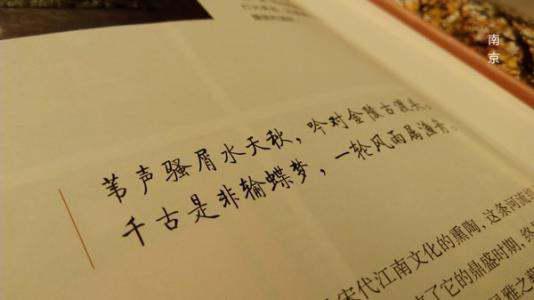 南京
苇声骚屑水天秋，吟对金陵古渡头。
千古是非输蝶梦，一轮风雨属渔舟。
宋代江南文化的熏陶，这条河流
了它的鼎盛时期，